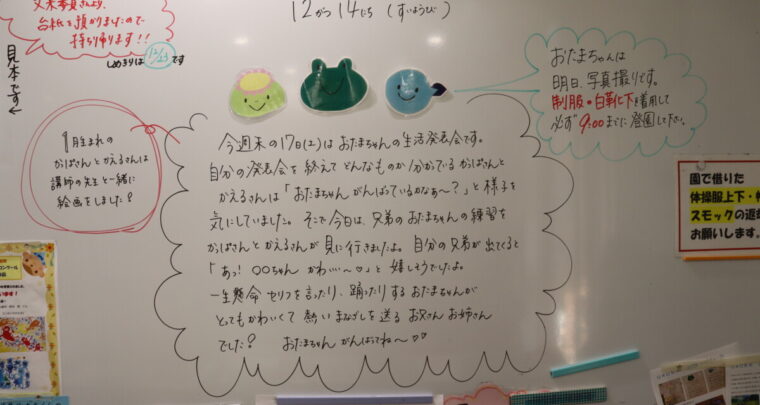 12がつ14にち（すいようび）
文集委員さんより、
台紙を預かりましたので
持ち帰ります!!
しめきりは 12/21 です
見本です←
1月生まれの
かばさんとかえるさんは
講師の先生と一緒に
絵画をしました!
今週末の17日(土)は おたまちゃんの生活発表会です。
自分の発表会を終えて どんなものか分かっているかばさんと
かえるさんは「おたまちゃんがんばっているかなぁ〜?」と様子を
気にしていました。そこで今日は、兄弟のおたまちゃんの練習を
かばさんとかえるさんが見に行きましたよ。自分の兄弟が出てくると
「あっ! ○○ちゃん かわいい〜♡」と嬉しそうでしたよ。
一生懸命 セリフを言ったり、踊ったりするおたまちゃんが
とってもかわいくて 熱いまなざしを送るお兄さんお姉さん
でした! おたまちゃんがんばってね〜♡♡
おたまちゃんは
明日、写真撮りです。
制服・白靴下を着用して
必ず9:00までに登園して下さい。
園で借りた
体操服上下・
スモックの返却
お願いします。